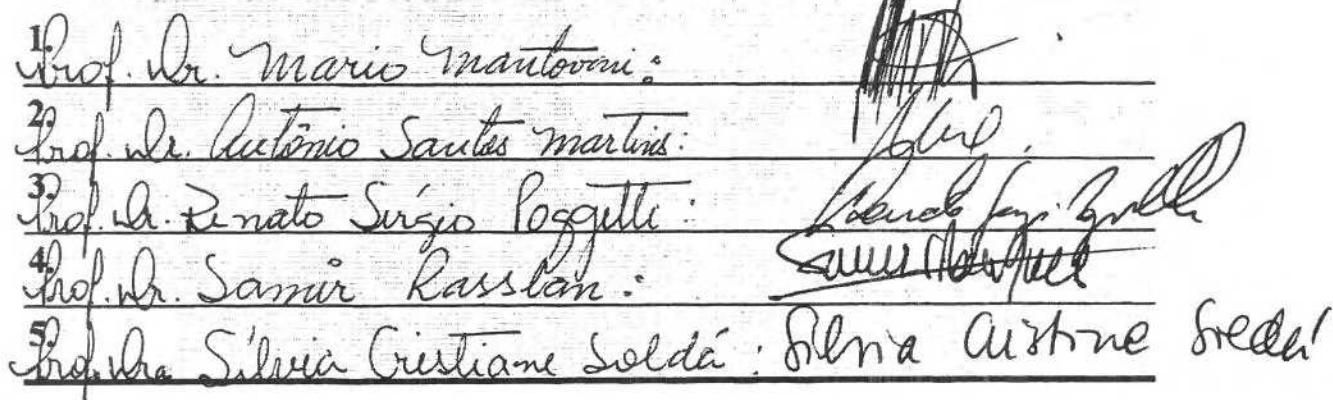 1. Prof. Dr. Mario Mantovani:
2. Prof. Dr. Antônio Santos Martins:
3. Prof. Dr. Renato Sérgio Poggetti:
4. Prof. Dr. Samir Rasslan:
5. Prof. Dra Sílvia Cristiane Soldá: Silvia Cristine Soldá